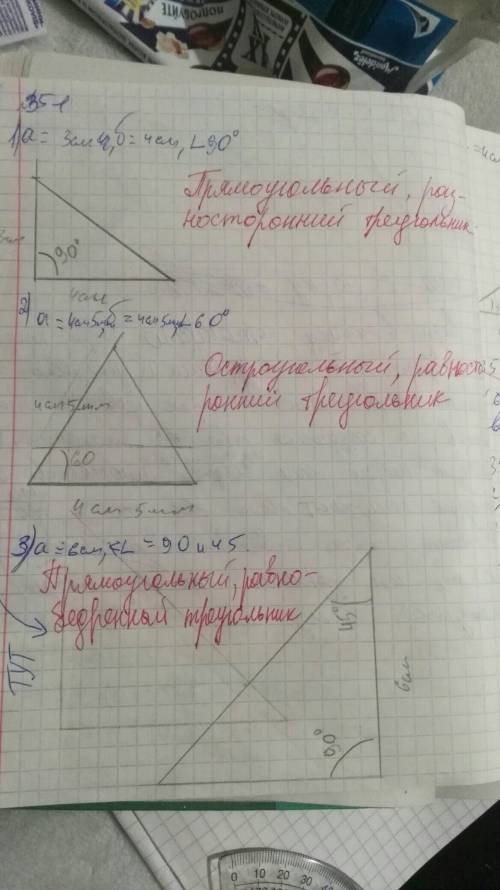 351
1) a = 3см, б = 4см, ∠90°
Прямоугольный, раз-
носторонний треугольник
90°
4см
2) a = 4см5мм, б = 4см5мм, ∠60°
Остроугольный, равносто
ронний треугольник
4см 5мм
60
4 см 5 мм
3) a = 6см, <L = 90 и 45.
Прямоугольный, равно-
бедренный треугольник
ТУТ
45°
6см
90°
0 10 20 30 40